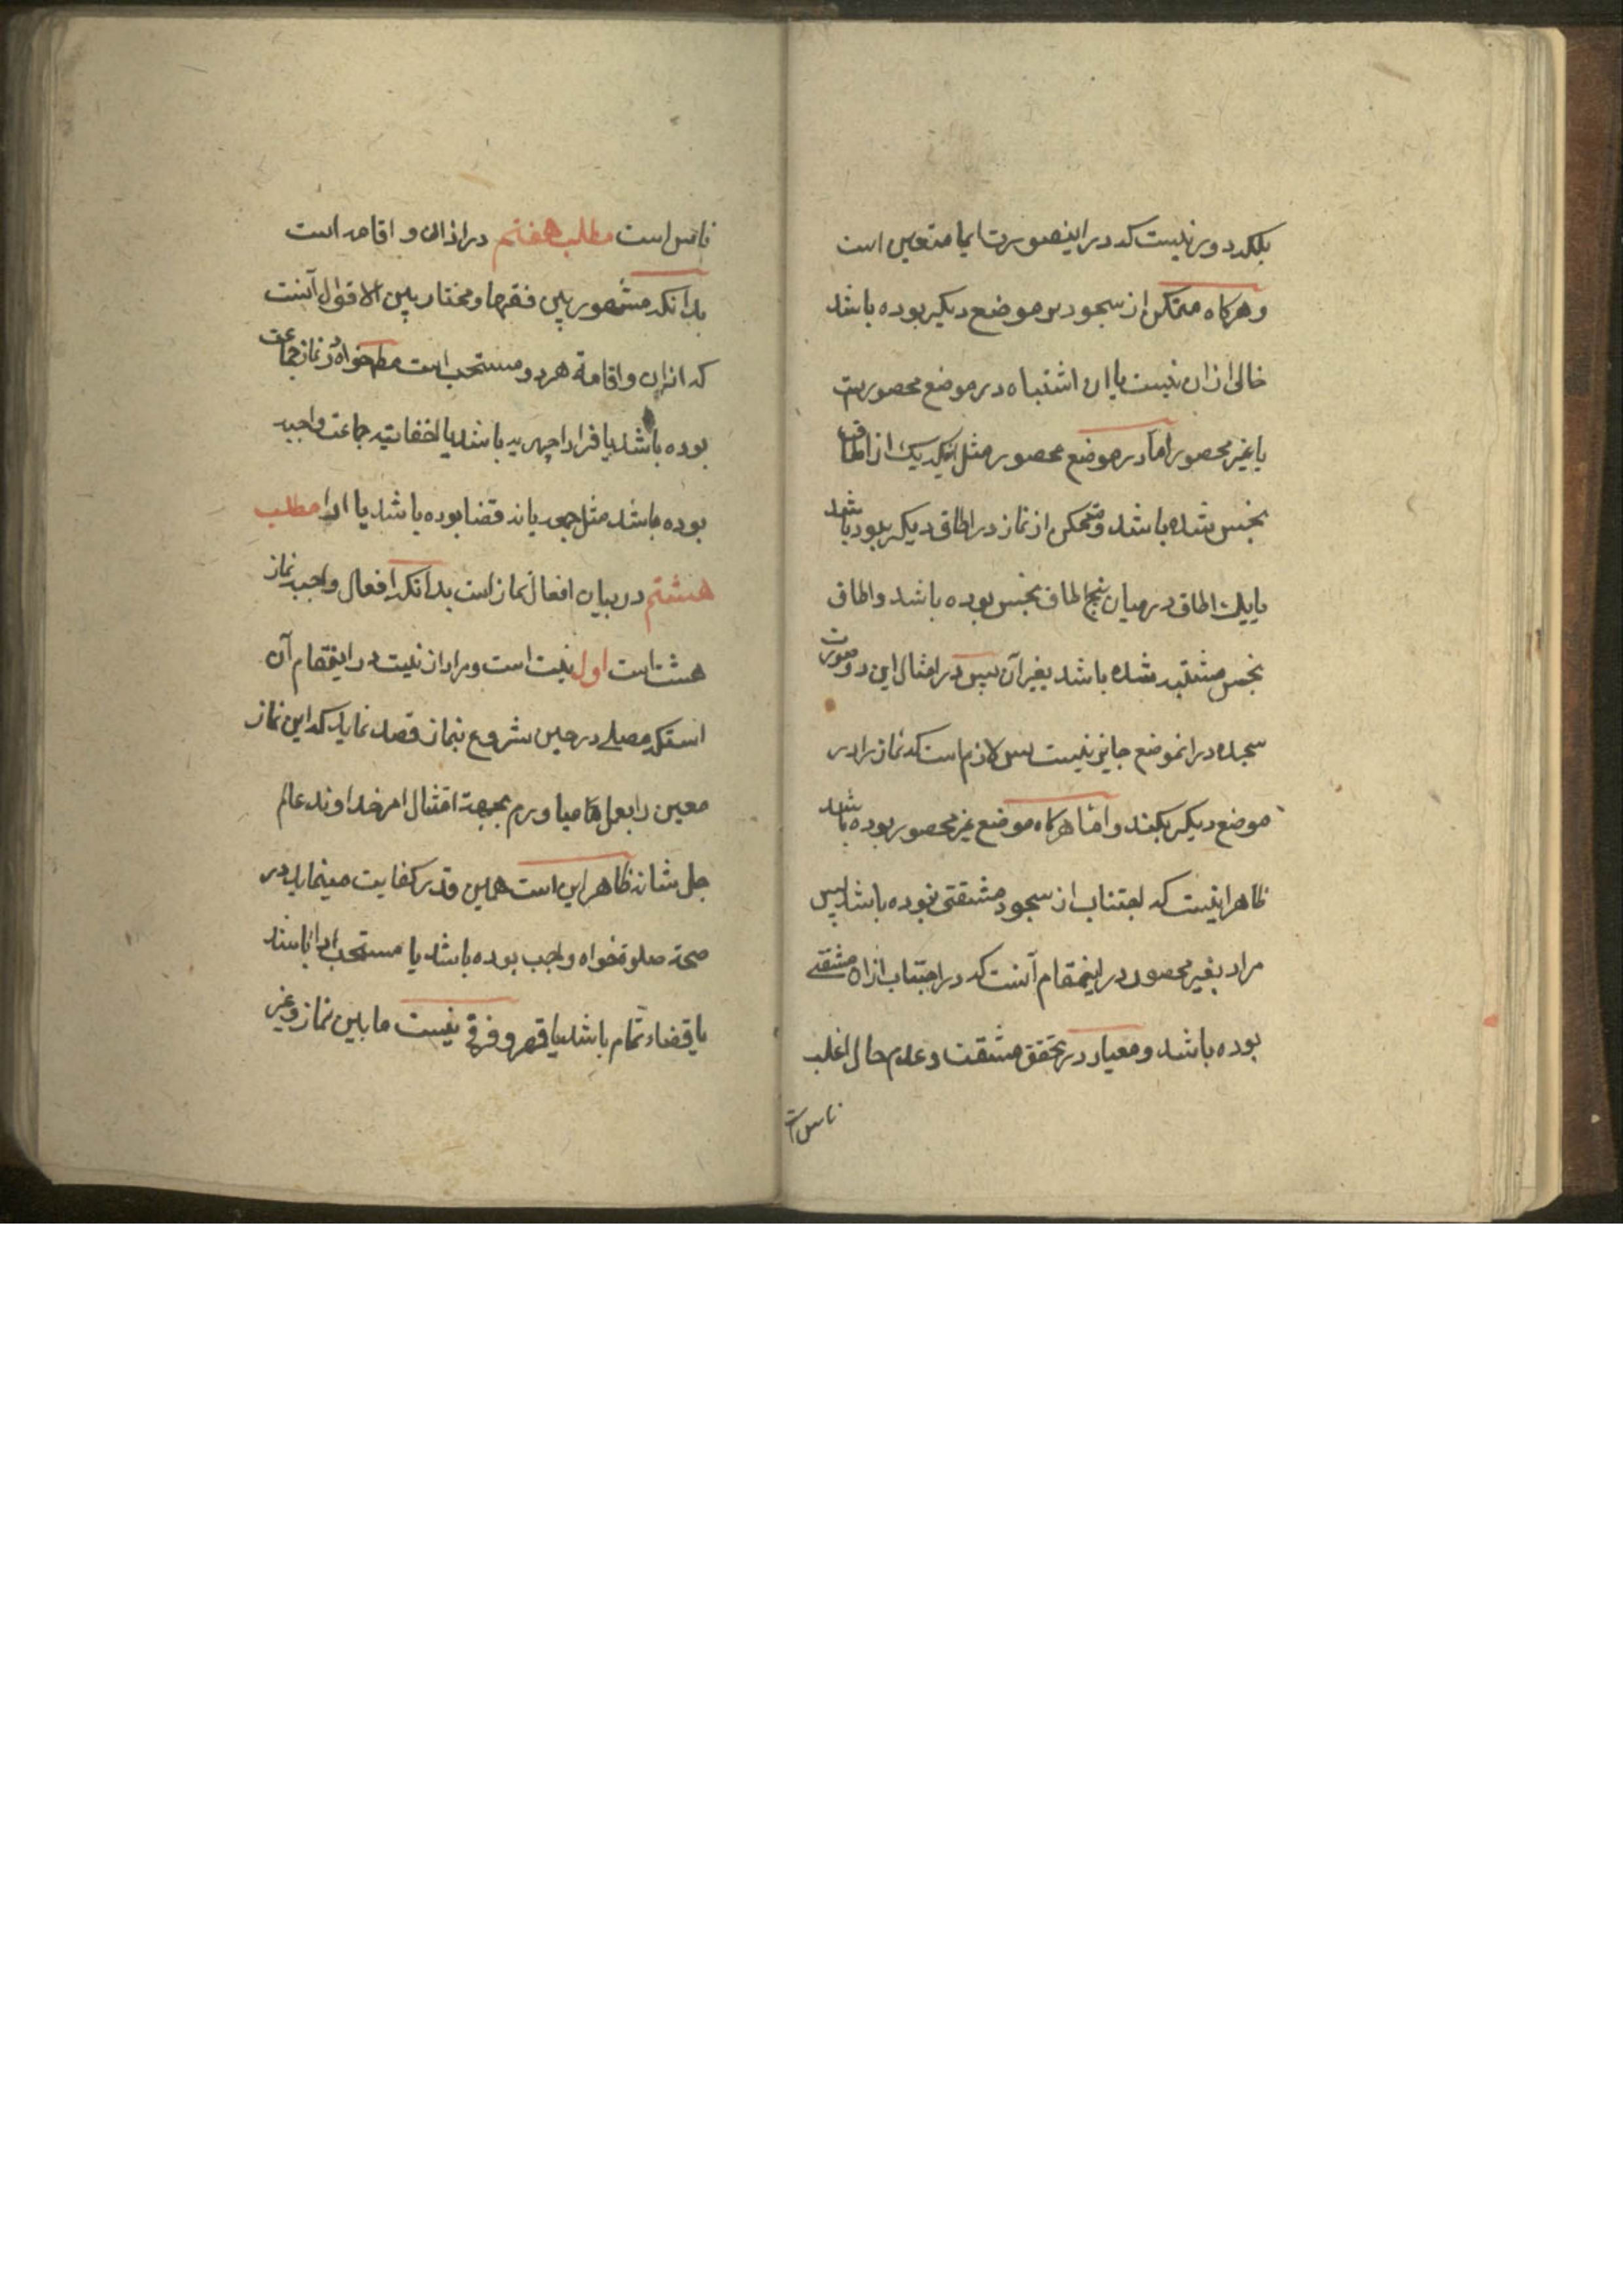 بلکه دور نیست که در اینصورت ایما متعین است
و هرکاه متمکن از سجود بر موضع دیکر بوده باشد
خالی از ان نیست یا ان اشتباه در موضع محصور است
یا غیر محصور اما در موضع محصور مثل اینکه یک از اطاق
نجس شده باشد و متمکن از نماز در اطاق دیکر بوده باشد
یا یک اطاق در میان پنج اطاق نجس بوده باشد و اطاق
نجس مشتبه شده باشد بغیر آن پس در امثال این دو صورت
سجده در انموضع جایز نیست پس لازم است که نماز را در
موضع دیکر بکند و اما هرکاه موضع غیر محصور بوده باشد
ظاهر اینست که اجتناب از سجود مشقتی نبوده باشد پس
مراد بغیر محصور در اینمقام آنست که در اجتناب ازان مشقتے
بوده باشد و معیار در تحقق مشقت و عدم حال اغلب
ناس است
ناس است مطلب هفتم در اذان و اقامه است
بدانکه مشهور بین فقها و مختار بین الاقوال آنست
که اذان و اقامة هر دو مستحب است مط خواه در نماز جماعت
بوده باشد یا فرادا جهریه باشد یا اخفاتیه جماعت واجبه
بوده باشد مثل جمعه یا نه قضا بوده باشد یا ادا مطلب
هشتم در بیان افعال نماز است بدانکه افعال واجبه نماز
هشت است اول نیت است و مراد از نیت در اینمقام آن
استکه مصلے در حین شروع بنماز قصد نماید که این نماز
معین را بعمل میاورم بجهة امتثال امر خداوند عالم
جل شانه ظاهر این است همین قدر کفایت مینماید در
صحة صلوة خواه واجب بوده باشد یا مستحب ادا باشد
یا قضاء تمام باشد یا قصر و فرقی نیست ما بین نماز و غیر